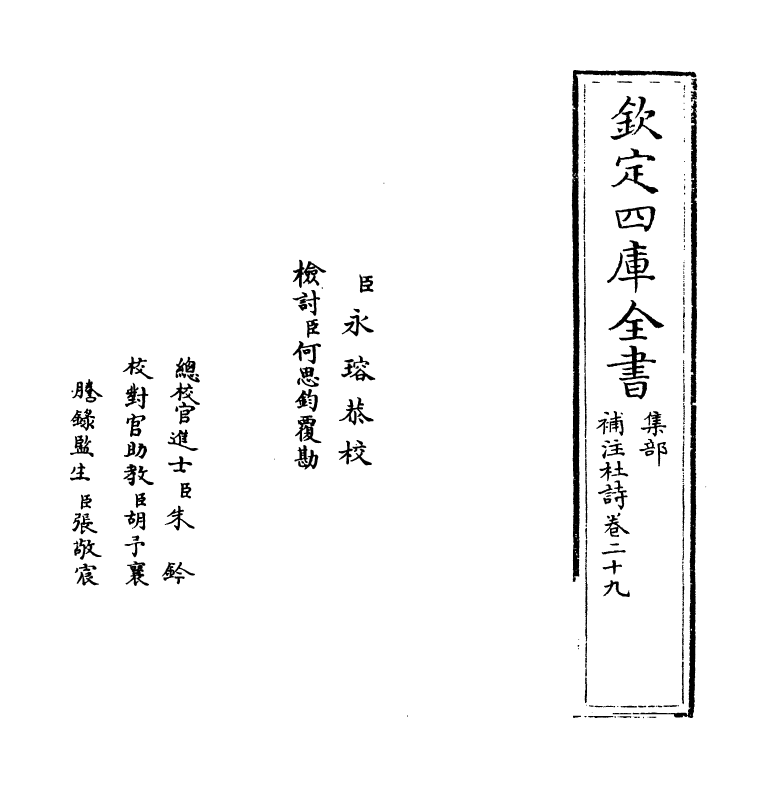 欽定四庫全書
集部
補注杜詩卷二十九
臣永瑢恭校
檢討臣何思鈞覆勘
總校官進士臣朱鈐
校對官助教臣胡予襄
謄錄監生臣張敬宸